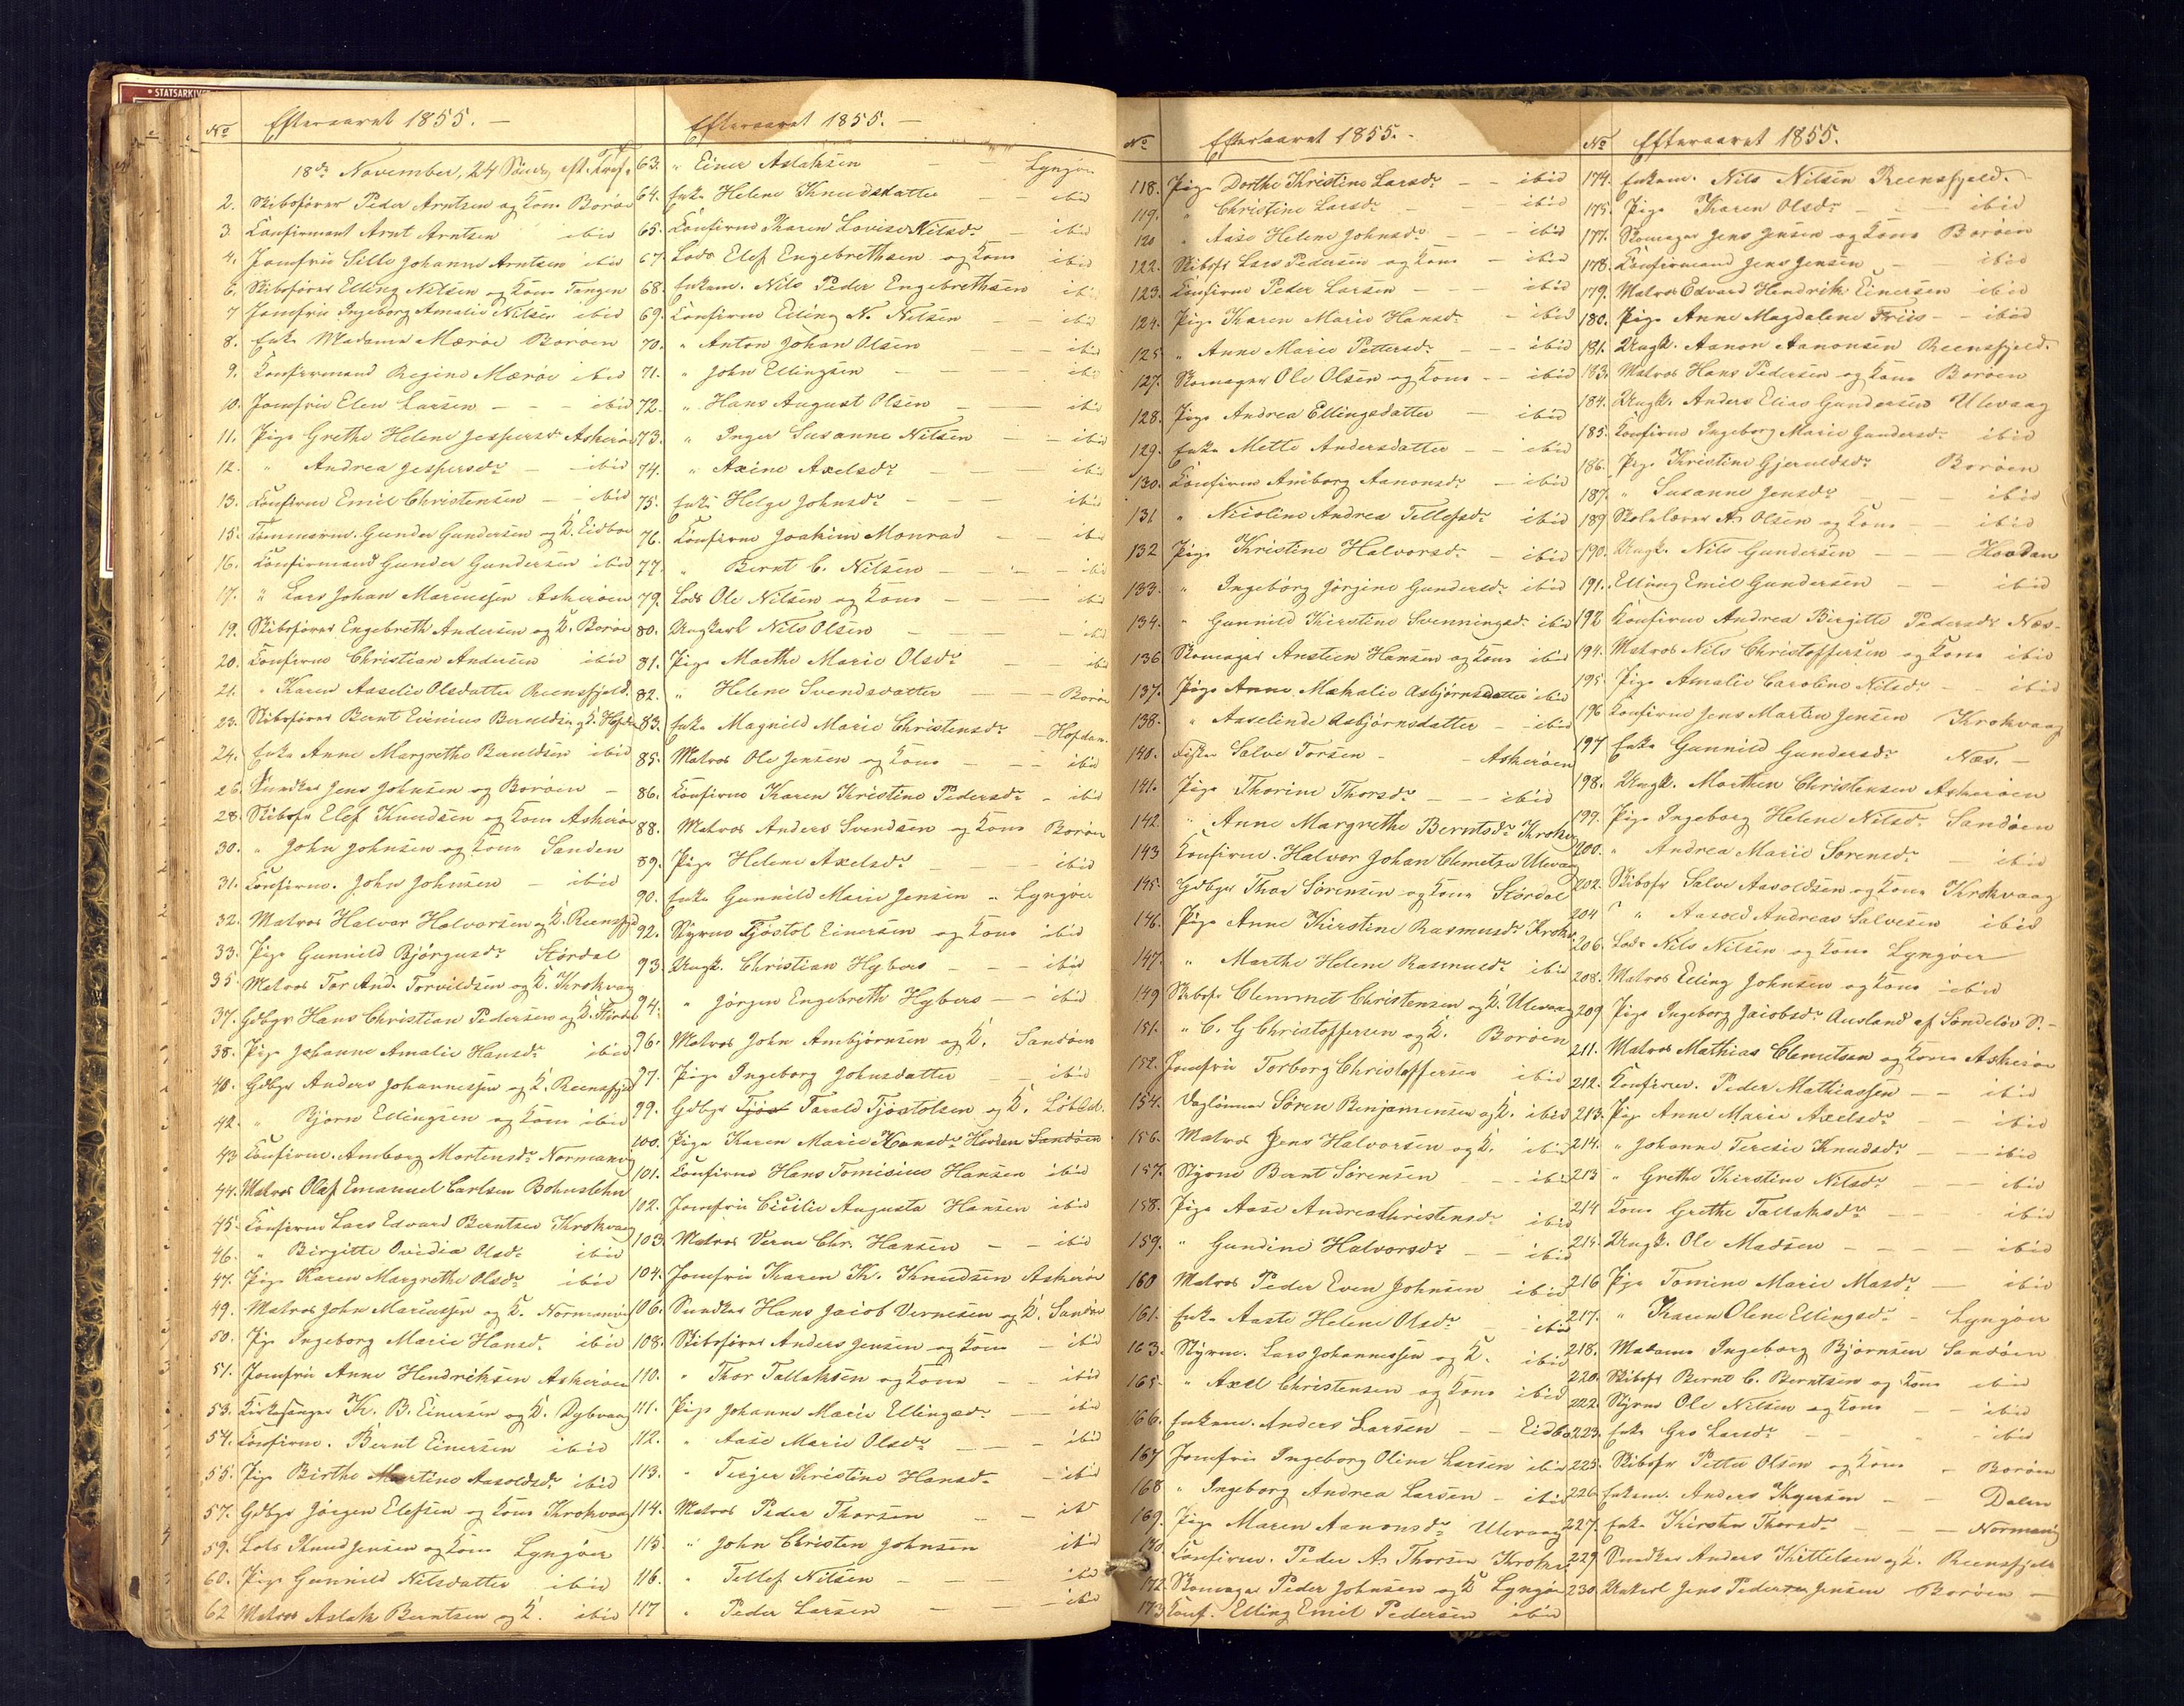 * STATSARKIVET
No Efteraaret 1855. —
18de November, 24 Sønd. eft. Tref.
2. Skibsfører Peder Arntsen og Kone Borøe
3 Confirmant Arnt Arntsen ibid
4. Jomfru Sille Johanne Arntsen ibid
6. Skibsfører Elling Nilsen og Kone Tangen
7 Jomfru Ingeborg Amalie Nilsen ibid
8. Enke Madame Mærøe Borøen
9. Confirmand Regine Mærøe ibid
10. Jomfru Elen Larsen - - - ibid
11. Pige Grethe Helene Jespersdr Askerøe
12. " Andrea Jespersdr - ibid
13. Confirm Emil Christensen - - ibid
15. Gunder Gundersen og K. Eidboe
16. Confirmand Gunder Gundersen ibid
17. " Lars Johan Marcussen Askerøen
19. Skibsfører Engebreth Andersen og K. Borøe
20. Confirm Christian Andersen ibid
21. " Karen Aaselie Olsdatter Reensfjeld.
23. Skibsfører Bernt Evenius Berntsen og K. Hofdan
24. Enke Anne Margrethe Berntsen ibid
26. Sundkar Jens Johnsen og Borøen -
28. Skibsfr Elef Knudsen og Kone Askerøe
30. " John Johnsen og Kone Sanden
31. Confirm. John Johnsen - ibid
32. Matros Halvor Halvorsen og K. Reensfjd
33. Pige Gunnild Bjørgusdr Størdal
35. Matros Tor And. Torvildsen og K. Krokvaag
37. Gdbgr Hans Christian Pedersen og K. Størdal
38. Pige Johanne Amalie Hansdr ibid
40. Gdbgr Anders Johannessen og K. Reensfjel
42. " Bjørn Ellingsen og Kone ibid
43 Confirm. Amborg Mortensdr Normanvig
44. Matros Olaf Emanuel Carlsen Bohuslehn
45. Confirm Lars Edvard Berntsen Krokvaag
46. " Birgitte Ovidia Olsdr ibid
47. Pige Karen Margrethe Olsdr ibid
49. Matros John Marcussen og K. Normanvig
50. Pige Ingeborg Marie Hansdr ibid
51. Jomfru Anne Hendriksen Askerøen
53. Kirkesanger K. B. Einersen og K. Dybvaag
54. Confirm. Bernt Einersen ibid
55. Pige Birthe Martine Aasoldsdr ibid
57. Gdbgr Jørgen Elefsen og Kone Krokvaag
59. Lods Knud Jensen og Kone Lyngøer
60. Pige Gunnild Nilsdatter ibid
62 Matros Aslak Berntsen og K. ibid
Efteraaret 1855. —
63. " Einer Aslaksen - - Lyngøer
64. Enke Helene Knudsdatter - - ibid
65. Confirm Karen Lovise Nilsdr - ibid
67. Lods Elef Engebrethsen og Kone ibid
68. Enkem. Nils Peder Engebrethsen ibid
69. Confirm Elling N. Nilsen - - ibid
70. " Anton Johan Olsen - - ibid
71. " John Ellingsen - - - ibid
72. " Hans August Olsen - - ibid
73. " Inger Susanne Nilsen - - ibid
74. " Axine Axelsdr - - ibid
75. Enke Helge Johnsdr - - - ibid
76. Confirm Joakim Monrad - - ibid
77. " Bernt C. Nilsen - - - ibid
79. Lods Ole Nilsen og Kone - - - ibid
80. Ungkarl Nils Olsen - - - ibid
81. Pige Marthe Marie Olsdr - ibid
82. " Helene Svendsdatter - - - Borøe
83. Enke Magnild Marie Christensdr - Hofdan.
85. Matros Ole Jensen og Kone - - ibid
86. Confirm Karen Kristine Pedersdr - ibid
88. Matros Anders Svendsen og Kone Borøen
89. Pige Helene Axelsdr - - - ibid
90. Enke Gunnild Marie Jensen " Lyngøer
92. Styrm Tjøstol Einersen og Kone ibid
93 Ungk. Christian Hybers - - - ibid
94. " Jørgen Engebreth Hybers - - ibid
96. Matros John Ambjørnsen og K. Sandøen
97. Pige Ingeborg Johnsdatter - ibid
99. Gdbgr Tjøst Tarald Tjøstolsen og K. Løbdal.
100. Pige Karen Marie Hansdr Hovdan Sandøen
101. Confirm Hans Tomisius Hansen ibid
102. Jomfru Cicilie Augusta Hansen ibid
103. Matros Verne Chr. Hansen - - ibid
104. Jomfru Karen K. Knudsen Askerøe
106. Sundkar Hans Jacob Vernesen og K. Sandøe
108. Skibsfører Anders Jensen og Kone - ibid
110. " Thor Tallaksen og Kone - - ibid
111. Pige Johanne Marie Ellingsdr - ibid
112. " Aase Marie Olsdr - - - ibid
113. " Terjer Kristine Hansdr - ibid
114. Matros Peder Thorsen - - ib
115. " John Christen Johnsen ibid
116. " Tellef Nilsen - - - ibid
117 " Peder Larsen - - - ibid
No Efteraaret 1855. -
118. Pige Dorthe Kristine Larsdr - - ibid
119. " Christine Larsdr - - - ibid
120 " Aase Helene Johnsdr - - - ibid
122. Skibsfr Lars Pedersen og Kone - ibid
123. Confirm Peder Larsen - - - ibid
124. Pige Karen Marie Hansdr - ibid
125 " Anne Marie Pettersdr - - - ibid
127. Skomager Ole Olsen og Kone - - ibid
128. Pige Andrea Ellingsdatter - ibid
129. Enke Mette Andersdatter - - ibid
130. Confirm Amborg Aanonsdr - ibid
131 " Nicoline Andrea Tellefsdr ibid
132 Pige Kristine Halvorsdr - ibid
133. " Ingeborg Jørgine Gundersdr ibid
134. " Gunnild Kirstine Svenningsdr ibid
136 Skomager Anstien Hansen og Kone ibid
137. Pige Anne Mathalie Asbjørnsdatter ibid
138. " Aaselinde Asbjørnsdatter - ibid
140. Fisker Salve Torsen - - Askerøen
141. Pige Thorine Thorsdr - - - ibid
142. " Anne Margrethe Berntsdr Krokv
143 Confirm. Halvor Johan Clemetsen Ulevaag
145. Gdbgr Thor Sørensen og Kone Størdal
146. Pige Anne Kirstine Rasmusdr Krokv
147. " Marthe Helene Rasmusdr ibid
149 Skibsfr Clemmet Christensen og K. Ulevaag
151. " C. G Christoffersen og K. Borøen
152. Jomfru Torborg Christoffersen ibid
154. Daglønner Søren Benjaminsen og K. ibid
156. Matros Jens Halvorsen og K. ibid
157. Styrm Bernt Sørensen - - ibid
158. Pige Aase Andrea Christensdr ibid
159. " Gundine Halvorsdr - - ibid
160 Matros Peder Even Johnsen ibid
161. Enke Aaste Helene Olsdr - ibid
163. Styrm. Lars Johannessen og K. ibid
165. " Axel Christensen og Kone ibid
166. Enkem. Anders Larsen - - Eidbo
167 Jomfru Ingeborg Oline Larsen ibid
168 " Ingeborg Andrea Larsen - ibid
169. Pige Maren Aanonsdr Ulevaag
170 Confirm. Peder A. Thorsen Krokv
172. Skomager Peder Johnsen og K Lyngøe
173 Conf. Elling Emil Pedersen ibid
No Efteraaret 1855.
174. Enkem. Nils Nilsen Reensfjeld. -
175. Pige Karen Olsdr - - - ibid
177. Skomager Jens Jensen og Kone Borøen
178. Confirmand Jens Jensen - ibid
179. Matros Edvard Hendrik Einersen ibid
180. Pige Anne Magdalene Friis - - ibid
181. Ungk. Aanon Aanonsen Reensfjeld.
183. Matros Hans Pedersen og Kone Borøen
184. Ungk. Anders Elias Gundersen Ulevaag
185. Confirm Ingeborg Marie Gundersdr ibid
186. Pige Kristine Gjeruldsdr Borøen
187. " Susanne Jensdr - - - ibid
189 Skolelærer A. Olsen og Kone - - ibid
190. Ungk. Nils Gundersen - - - Hovdan
191. Elling Emil Gundersen - - ibid
192 Confirm Andrea Birgitte Pedersdr Næs-
194. Matros Nils Christoffersen og Kone ibid
195. Pige Amalie Caroline Nilsdr - - ibid
196 Confirm Jens Martin Jensen Krokvaag
197 Enke Gunnild Gundersdr Næs. -
198. Ungk. Morthen Christensen Askerøen
199. Pige Ingeborg Helene Nilsdr Sandøen
200. " Andrea Marie Sørensdr - ibid
202. Skibsfr Salve Aasoldsen og Kone Krokvaag
204 " Aasold Andreas Salvesen ibid
206. Lods Nils Nilsen og Kone Lyngøer
208. Matros Elling Johnsen og Kone ibid
209 Pige Ingeborg Jacobsdr Ausland af Søndeløv S. -
211. Matros Mathias Clemetsen og Kone Askerøe
212. Confirm. Peder Mathiassen - - ibid
213. Pige Anne Marie Axelsdr - - ibid
214. " Johanne Teresie Knudsdr - - - ibid
213 " Grethe Kirstine Nilsdr - - - ibid
214 Kone Grethe Tallaksdr - - - ibid
215. Ungk. Ole Madsen - - - - ibid
216 Pige Tomine Marie Masdr - - ibid
217. " Karen Olene Ellingsdr - Lyngøer
218. Madame Ingeborg Bjørnsen Sandøen
220. Skibsfr Bernt C. Berntsen og Kone ibid
222. Styrm Ole Nilsen og Kone - - ibid
223. Enke Gro Larsdr - - - - ibid
225. Skibsfr Petter Olsen og Kone - Borøen
226. Enkem. Anders - - Dalen
227. Enke Kirsten Thorsdr - - - Normanvig
229. Sundkar Anders Kittelsen og K. Reensfjeld
230. Unkarl Jens Pedersen Jensen Borøen -